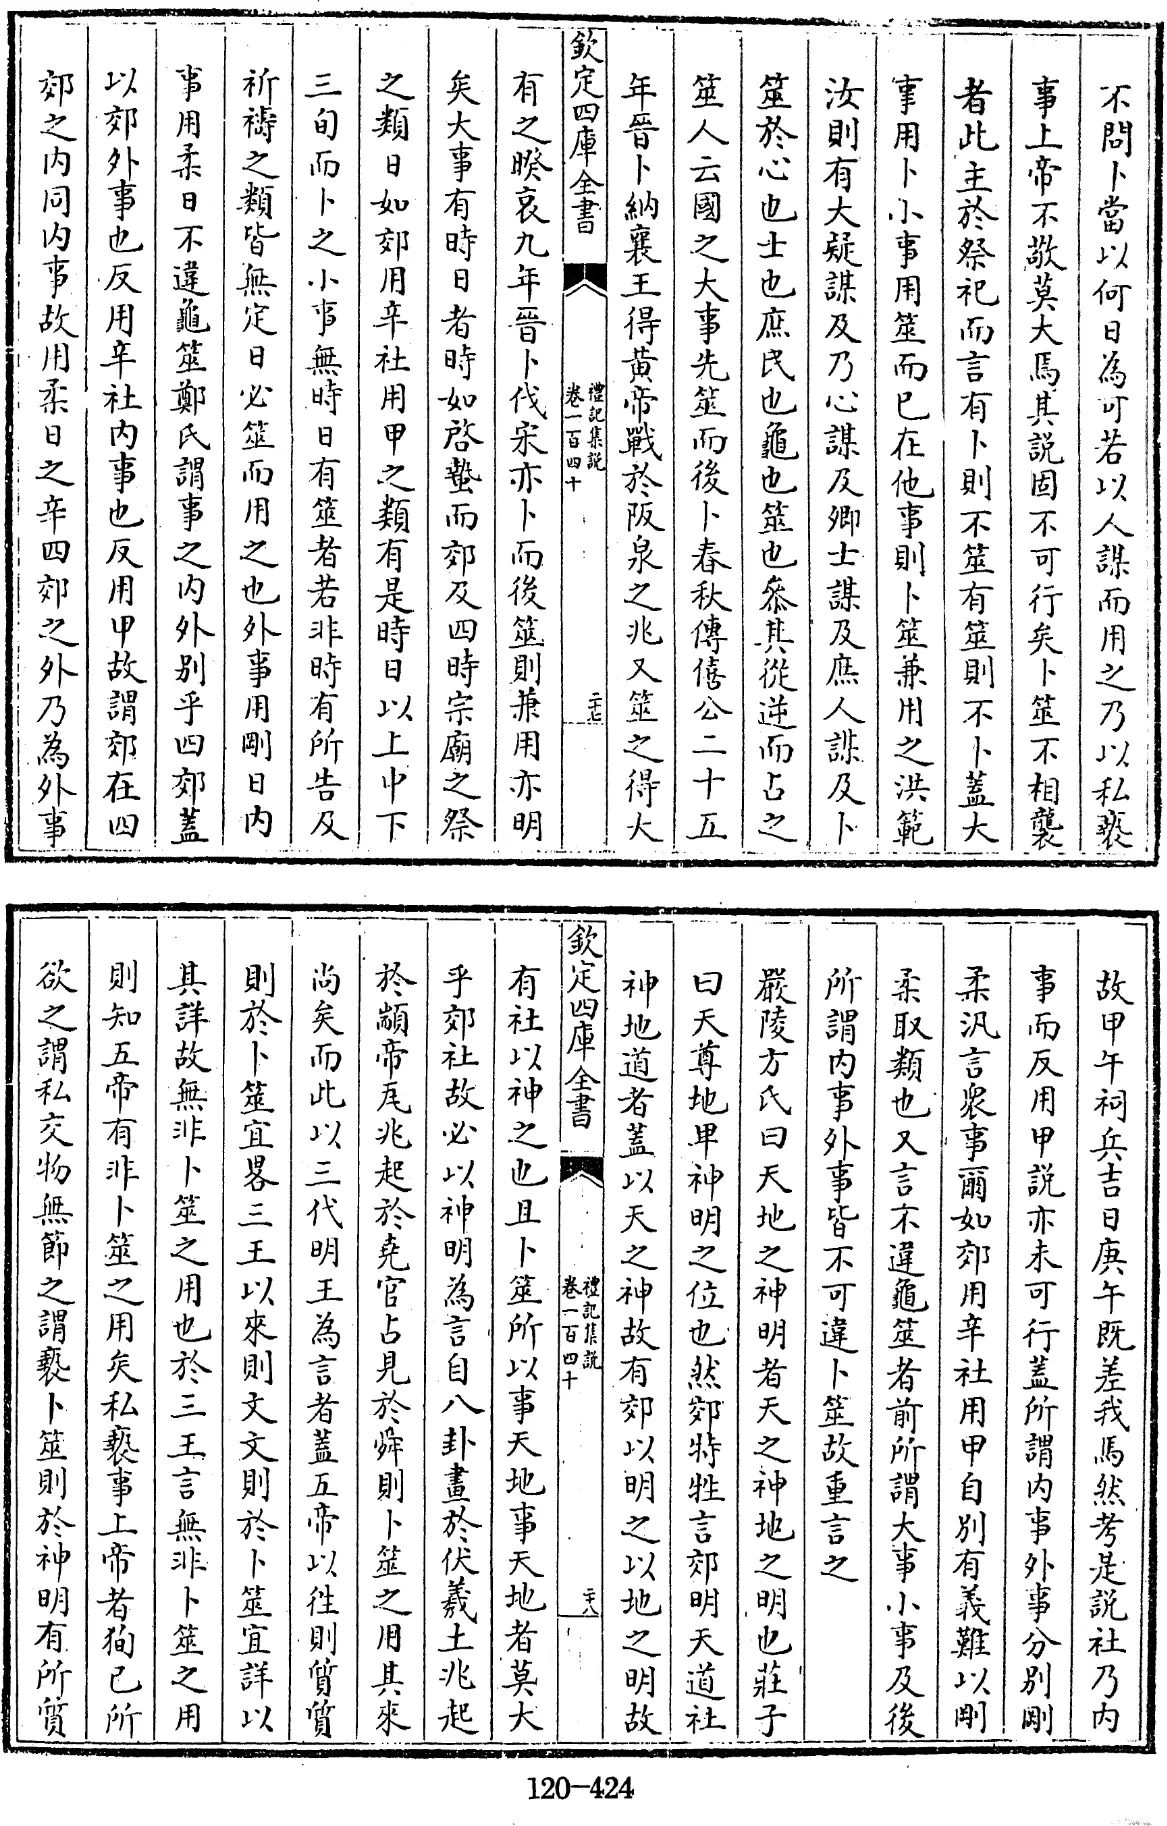 不問卜當以何日為可若以人謀而用之乃以私褻
事上帝不敬莫大焉其説固不可行矣卜筮不相襲
者此主於祭祀而言有卜則不筮有筮則不卜蓋大
事用卜小事用筮而已在他事則卜筮兼用之洪範
汝則有大疑謀及乃心謀及卿士謀及庶人謀及卜
筮於心也士也庶民也龜也筮也叅其從逆而占之
筮人云國之大事先筮而後卜春秋傳僖公二十五
年晉卜納襄王得黄帝戰於阪泉之兆又筮之得大
欽定四庫全書
禮記集説
卷一百四十
二十七
有之暌哀九年晉卜伐宋亦卜而後筮則兼用亦明
矣大事有時日者時如啓蟄而郊及四時宗廟之祭
之類日如郊用辛社用甲之類有是時日以上中下
三旬而卜之小事無時日有筮者若非時有所告及
祈禱之類皆無定日必筮而用之也外事用剛日内
事用柔日不違龜筮鄭氏謂事之内外别乎四郊蓋
以郊外事也反用辛社内事也反用甲故謂郊在四
郊之内同内事故用柔日之辛四郊之外乃為外事
故甲午祠兵吉日庚午既差我馬然考是説社乃内
事而反用甲説亦未可行蓋所謂内事外事分别剛
柔汎言衆事爾如郊用辛社用甲自别有義難以剛
柔取類也又言不違龜筮者前所謂大事小事及後
所謂内事外事皆不可違卜筮故重言之
嚴陵方氏曰天地之神明者天之神地之明也莊子
曰天尊地卑神明之位也然郊特牲言郊明天道社
神地道者蓋以天之神故有郊以明之以地之明故
欽定四庫全書
禮記集説
卷一百四十
二十八
有社以神之也且卜筮所以事天地事天地者莫大
乎郊社故必以神明為言自八卦畫於伏羲土兆起
於顓帝瓦兆起於堯官占見於舜則卜筮之用其來
尚矣而此以三代明王為言者蓋五帝以徃則質質
則於卜筮宜畧三王以來則文文則於卜筮宜詳以
其詳故無非卜筮之用也於三王言無非卜筮之用
則知五帝有非卜筮之用矣私褻事上帝者狥已所
欲之謂私交物無節之謂褻卜筮則於神明有所質
120-424